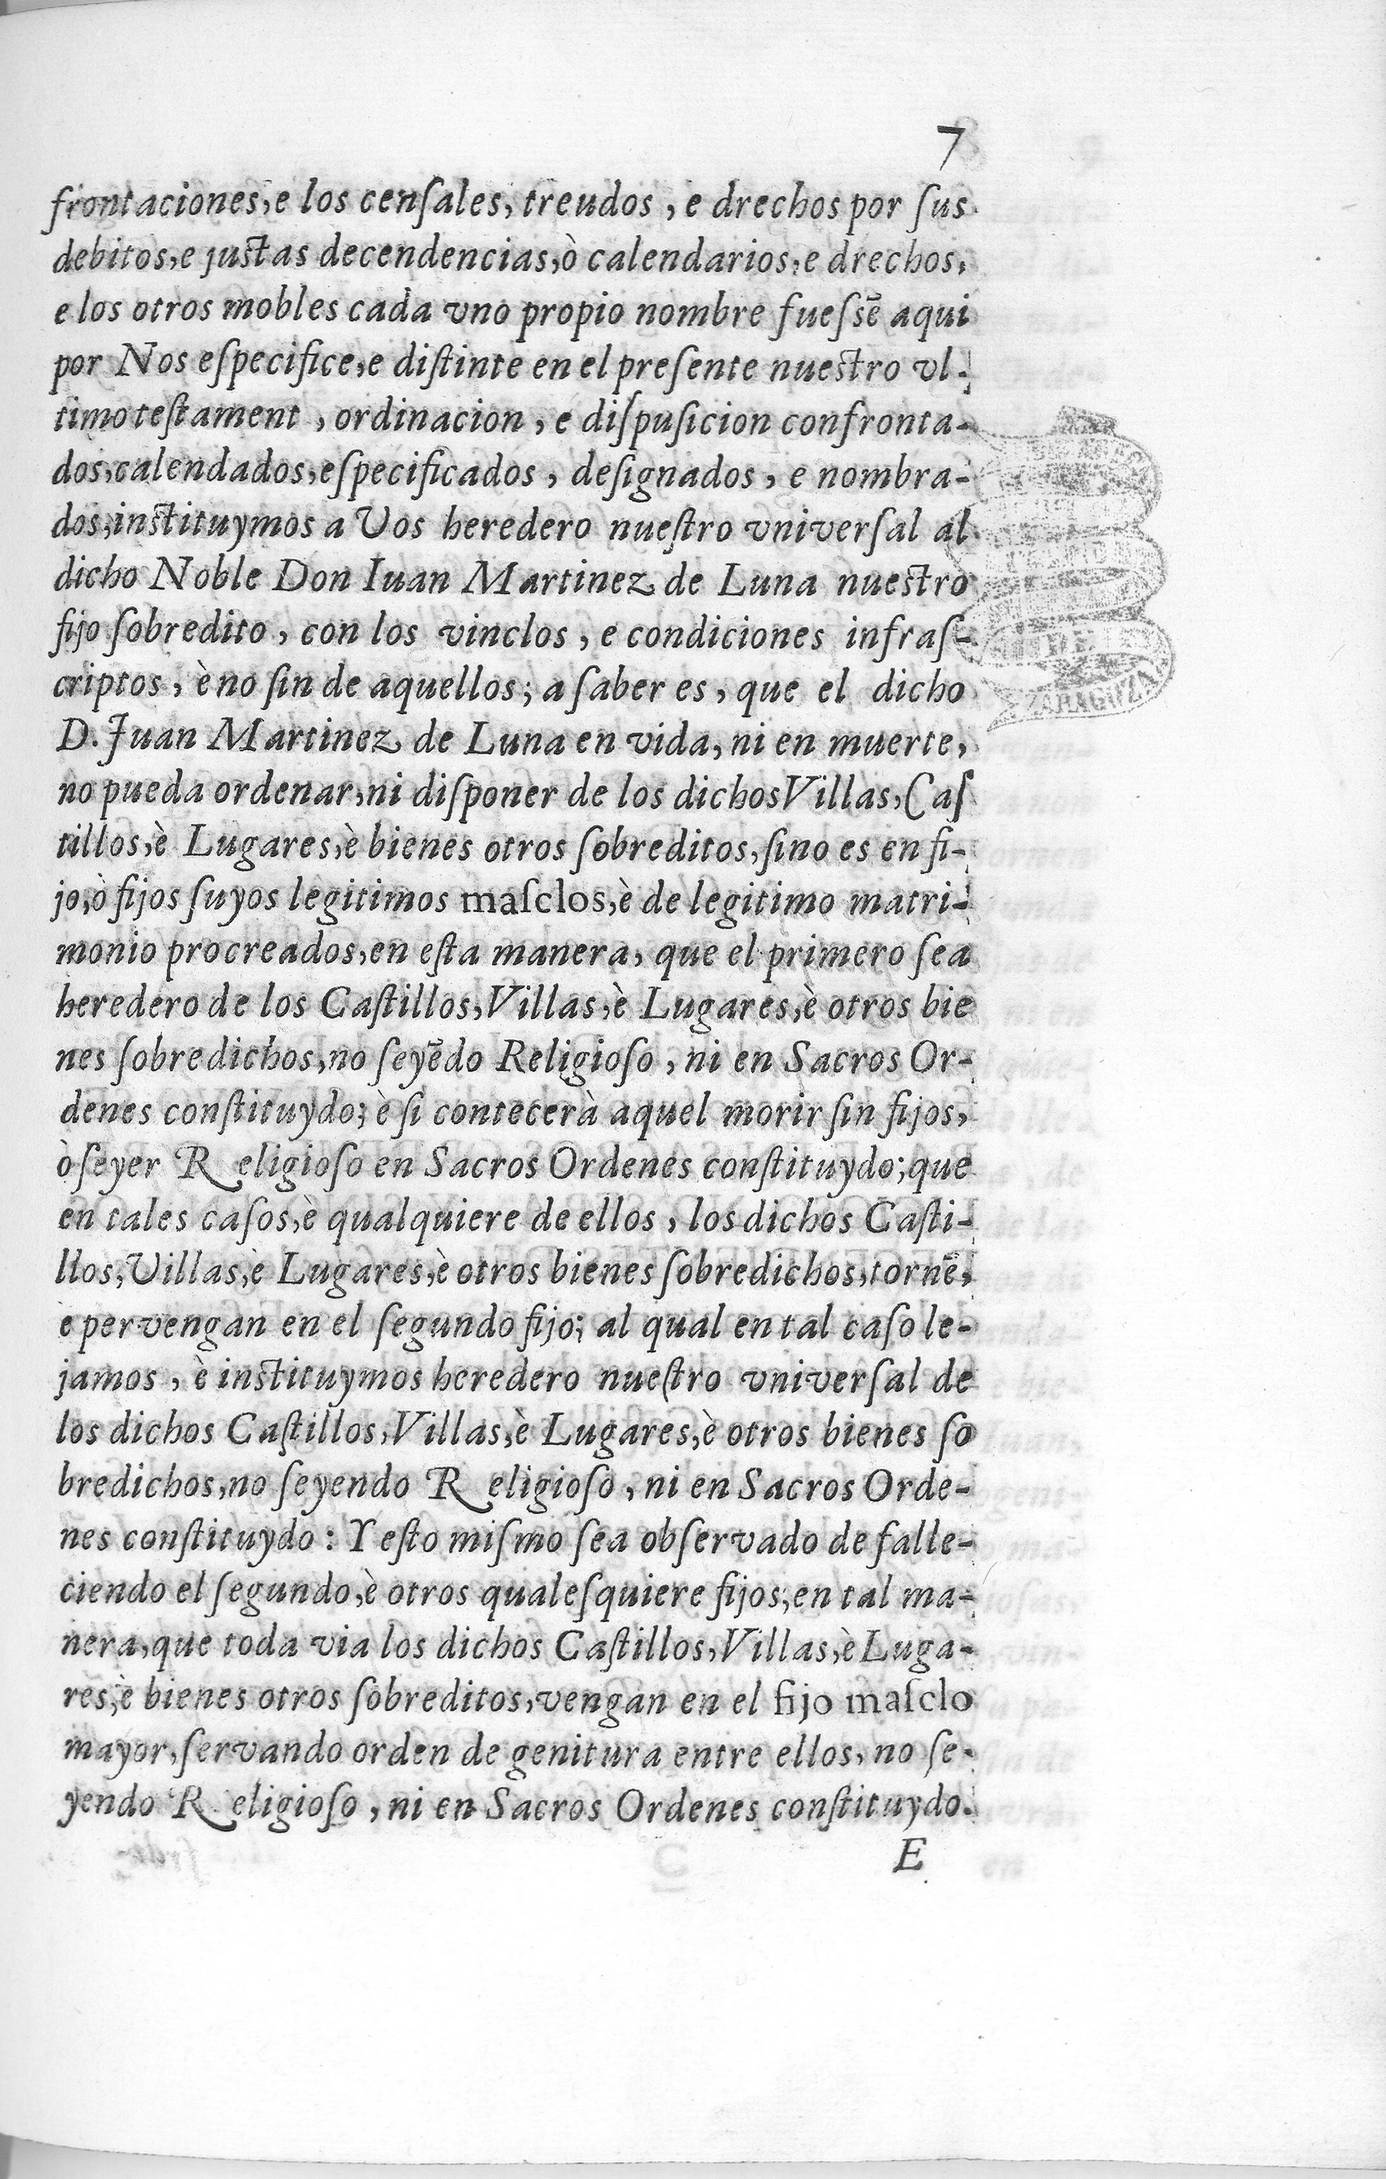 7
frontaciones, e los censales, treudos, e drechos por sus
debitos, e justas decendencias, ò calendarios, e drechos,
e los otros mobles cada vno propio nombre fuessẽ aqui
por Nos especifice, e distinte en el presente nuestro vl-
timo testament, ordinacion, e dispusicion confronta-
dos, calendados, especificados, designados, e nombra-
dos, instituymos a Vos heredero nuestro vniversal al
dicho Noble Don Iuan Martinez de Luna nuestro
fijo sobredito, con los vinclos, e condiciones infras-
criptos, è no sin de aquellos; a saber es, que el dicho
D. Juan Martinez de Luna en vida, ni en muerte,
no pueda ordenar, ni disponer de los dichos Villas, Cas
tillos, è Lugares, è bienes otros sobreditos, sino es en fi-
jo, ò fijos suyos legitimos masclos, è de legitimo matri-
monio procreados, en esta manera, que el primero sea
heredero de los Castillos, Villas, è Lugares, è otros bie
nes sobredichos, no seyẽdo Religioso, ni en Sacros Or-
denes constituydo; è si contecerà aquel morir sin fijos,
ò seyer Religioso en Sacros Ordenes constituydo; que
en tales casos, è qualquiere de ellos, los dichos Casti-
llos, Villas, è Lugares, è otros bienes sobredichos, tornẽ,
e pervengan en el segundo fijo; al qual en tal caso le-
jamos, è instituymos heredero nuestro vniversal de
los dichos Castillos, Villas, è Lugares, è otros bienes so
bredichos, no seyendo Religioso, ni en Sacros Orde-
nes constituydo: Y esto mismo sea observado de falle-
ciendo el segundo, è otros qualesquiere fijos; en tal ma-
nera, que toda via los dichos Castillos, Villas, è Luga-
res, è bienes otros sobreditos, vengan en el fijo masclo
mayor, servando orden de genitura entre ellos, no se-
yendo Religioso, ni en Sacros Ordenes constituydo.
E
ZARAGOZA